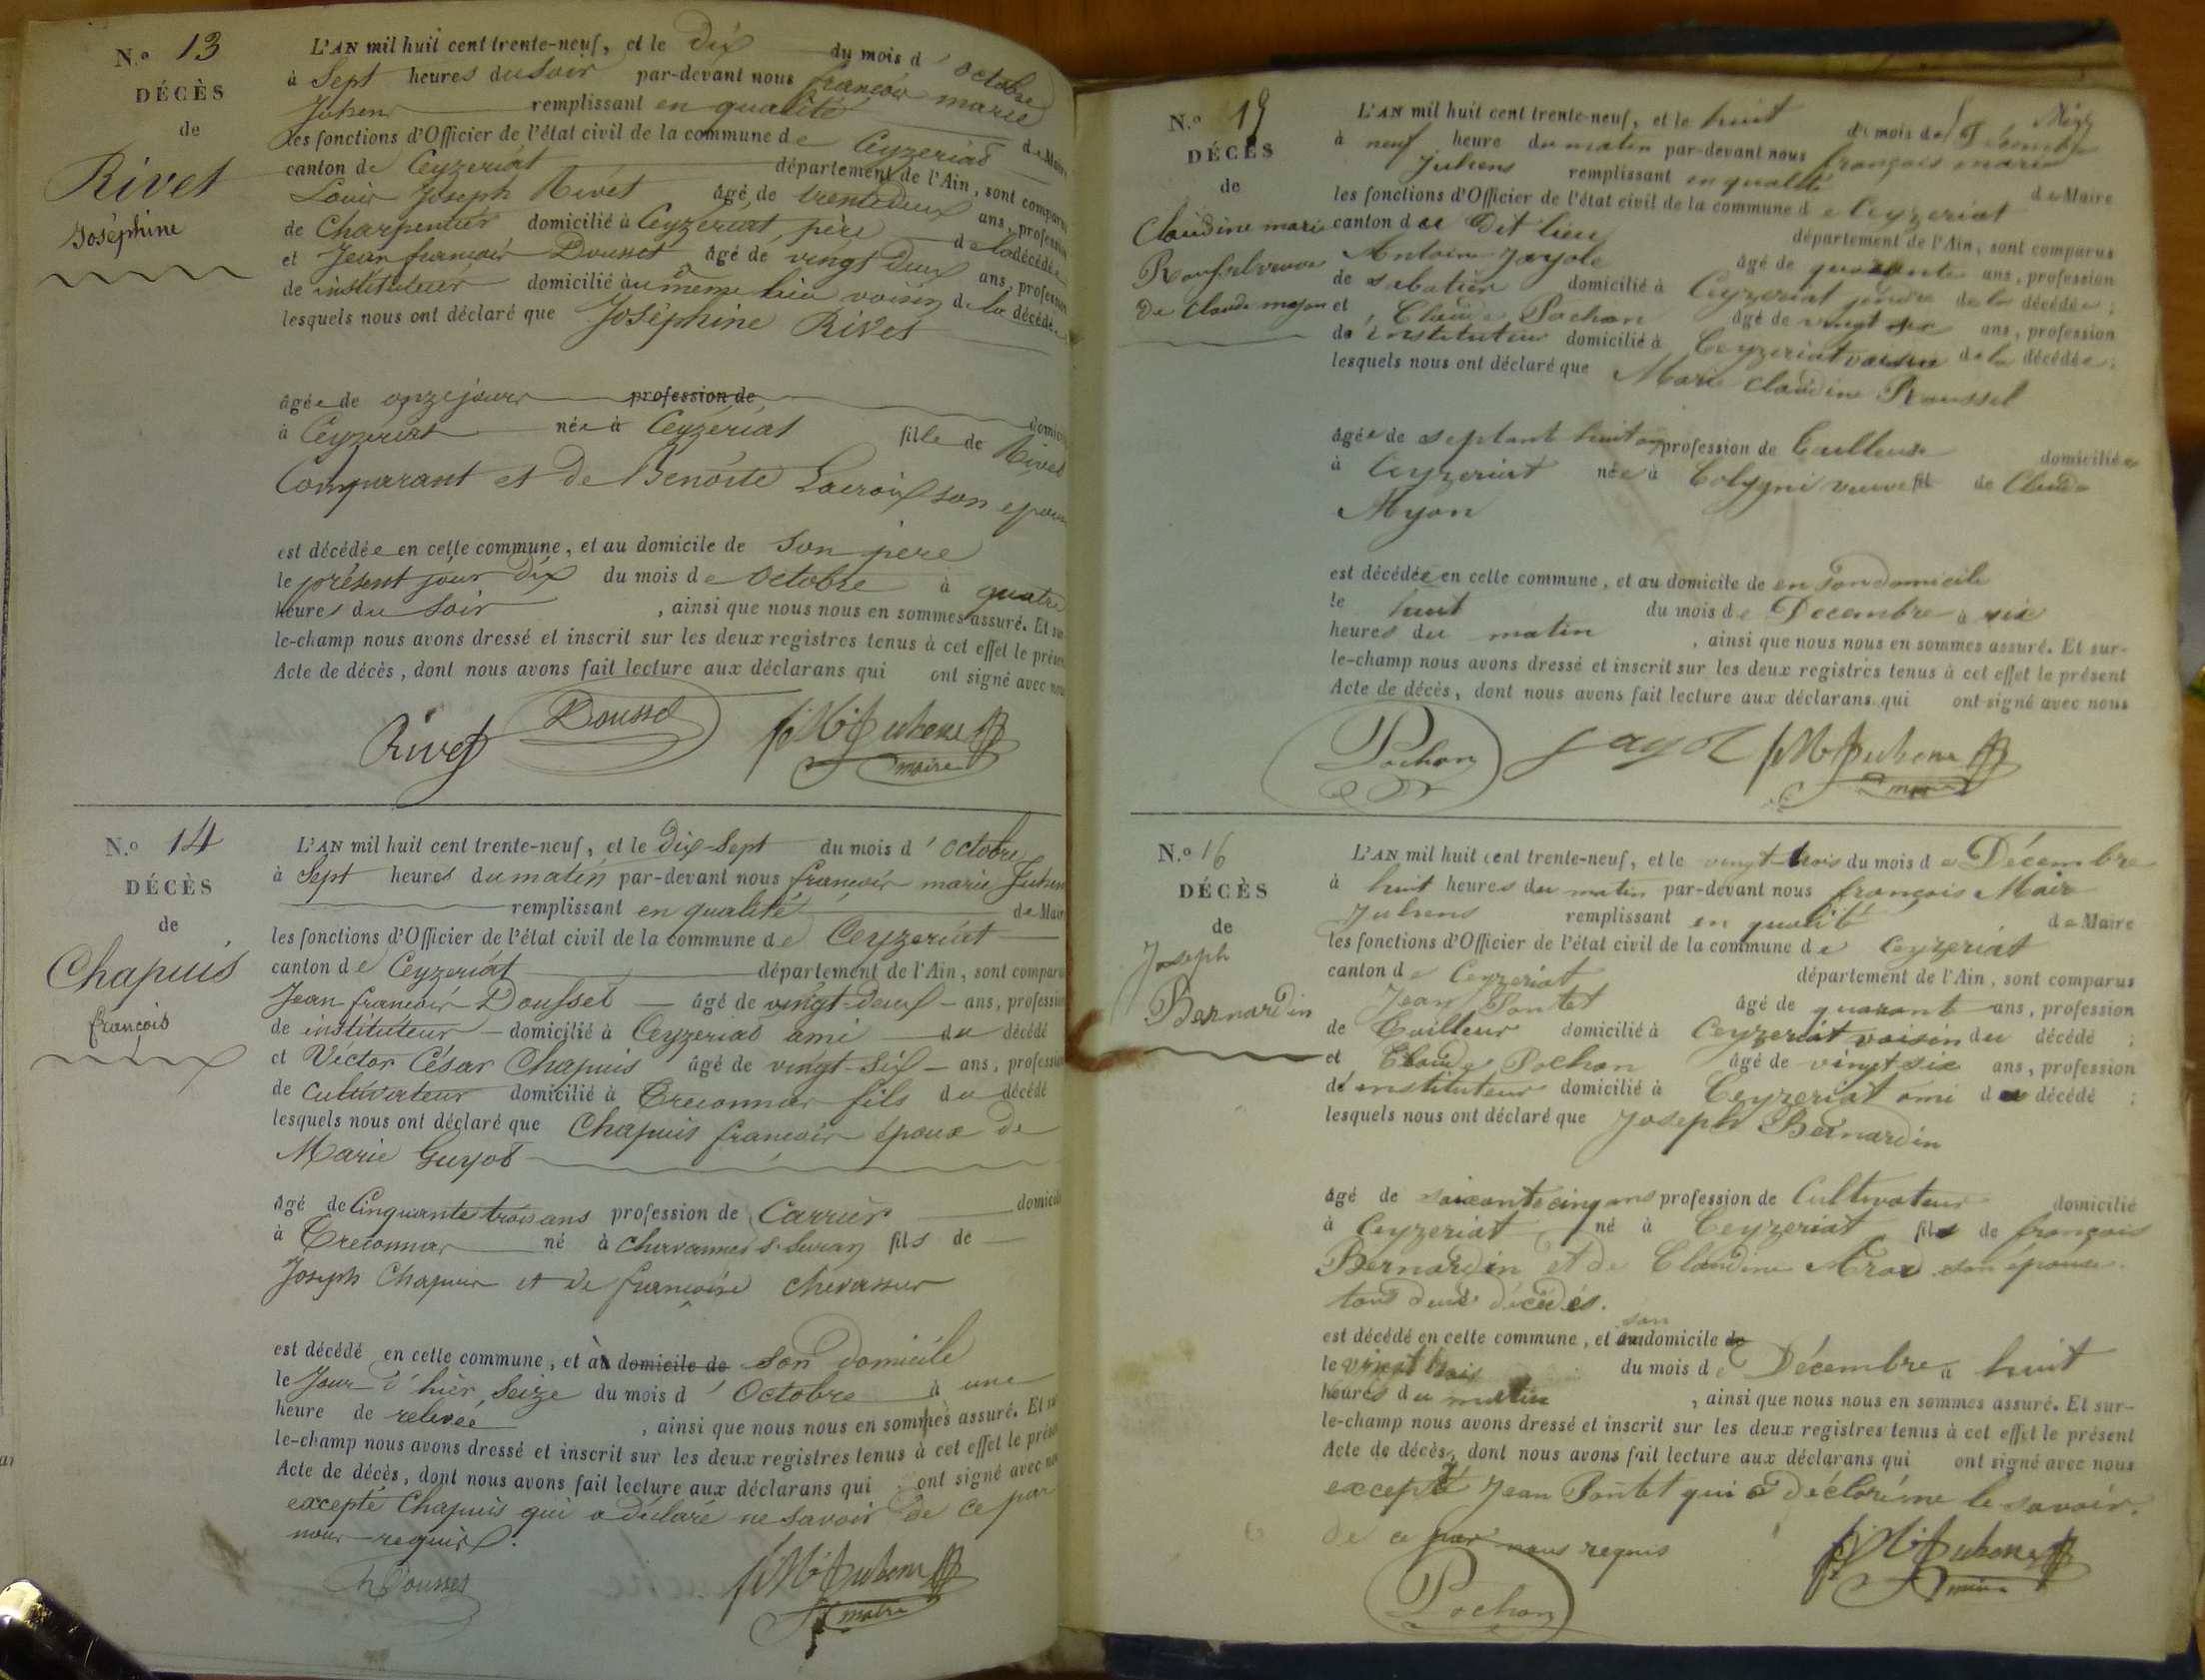 N.º 13
DÉCÈS
de
Rivet
Joséphine
L'AN mil huit cent trente-neuf, et le Dix du mois d' octobre
à Sept heures du Soir par-devant nous françois marie
Juhens remplissant en qualité de Maire
les fonctions d'Officier de l'état civil de la commune de Ceyzeriat
canton de Ceyzeriat département de l'Ain, sont comparus
Louis Joseph Rivet âgé de trente deux ans, profession
de Charpentier domicilié à Ceyzeriat, père de la décédée
et Jean françois Dousset âgé de vingt deux ans, profession
de instituteur domicilié au même lieu voisin de la décédée
lesquels nous ont déclaré que Joséphine Rivet
âgée de onze jours profession de domici
à Ceyzériat née à Ceyzériat fille de Rivet
Comparant et de Benoite Lacroix son epouse
est décédée en cette commune, et au domicile de son père
le présent jour Dix du mois de octobre à quatre
heures du Soir, ainsi que nous nous en sommes assuré. Et sur-
le-champ nous avons dressé et inscrit sur les deux registres tenus à cet effet le présent
Acte de décès, dont nous avons fait lecture aux déclarans qui ont signé avec nous
Rivet Dousset f M Juhens
maire
N.º 14
DÉCÈS
de
Chapuis
françois
L'AN mil huit cent trente-neuf, et le Dix-Sept du mois d' octobre
à Sept heures du matin par-devant nous françois marie Juhens
remplissant en qualité de Maire
les fonctions d'Officier de l'état civil de la commune de Ceyzeriat
canton de Ceyzeriat département de l'Ain, sont comparus
Jean françois Dousset âgé de vingt-deux ans, profession
de instituteur domicilié à Ceyzeriat ami du décédé
et Victor César Chapuis âgé de vingt-six ans, profession
de Cultivateur domicilié à Treconnas fils du décédé
lesquels nous ont déclaré que Chapuis françois époux de
Marie Guyot
âgé de Cinquante trois ans profession de Carrier domicilié
à Treconnas né à Chavannes s. Suran fils de
Joseph Chapuis et de françoise Chevassus
est décédé en cette commune, et à domicile de son domicile
le Jour d'hier, Seize du mois d' Octobre à une
heure de relevée, ainsi que nous nous en sommes assuré. Et sur-
le-champ nous avons dressé et inscrit sur les deux registres tenus à cet effet le présent
Acte de décès, dont nous avons fait lecture aux déclarans qui ont signé avec nous
excepté Chapuis qui a déclaré ne savoir de ce par
nous requis.
Dousset f M Juhens
maire
N.º 19
DÉCÈS
de
Claudine marie
Roussel veuve
De Claude mayon
L'AN mil huit cent trente-neuf, et le huit du mois de Décembre
à neuf heure du matin par-devant nous françois marie
Juhens remplissant en qualité de Maire
les fonctions d'Officier de l'état civil de la commune de Ceyzeriat
canton du Dit lieu département de l'Ain, sont comparus
Antoine Jayole âgé de quarante ans, profession
de sabatier domicilié à Ceyzeriat gendre de la décédée;
et Claude Pochon âgé de vingt six ans, profession
de instituteur domicilié à Ceyzeriat voisin de la décédée;
lesquels nous ont déclaré que Marie Claudine Roussel
âgée de septante huit ans profession de Tailleuse domiciliée
à Ceyzeriat née à Coligni veuve fil de Claude
Myon
est décédée en cette commune, et au domicile de en son domicile
le huit du mois de Decembre à six
heures du matin, ainsi que nous nous en sommes assuré. Et sur-
le-champ nous avons dressé et inscrit sur les deux registres tenus à cet effet le présent
Acte de décès, dont nous avons fait lecture aux déclarans qui ont signé avec nous
Pochon Jayol f M Juhens
maire
N.º 16
DÉCÈS
de
Joseph
Bernardin
L'AN mil huit cent trente-neuf, et le vingt-trois du mois de Décembre
à huit heures du matin par-devant nous françois Marie
Juhens remplissant en qualité de Maire
les fonctions d'Officier de l'état civil de la commune de Ceyzeriat
canton de Ceyzeriat département de l'Ain, sont comparus
Jean Pontet âgé de quarante ans, profession
de Tailleur domicilié à Ceyzeriat voisin du décédé;
et Claude Pochon âgé de vingt six ans, profession
d'instituteur domicilié à Ceyzeriat ami du décédé;
lesquels nous ont déclaré que Joseph Bernardin
âgé de soixante cinq ans profession de Cultivateur domicilié
à Ceyzeriat né à Ceyzeriat fils de françois
Bernardin et de Claudine son épouse
tous deux décédés.
est décédé en cette commune, et au son domicile de
le vingt trois du mois de Décembre à huit
heures du matin, ainsi que nous nous en sommes assuré. Et sur-
le-champ nous avons dressé et inscrit sur les deux registres tenus à cet effet le présent
Acte de décès, dont nous avons fait lecture aux déclarans qui ont signé avec nous
excepté Jean Pontet qui a déclaré ne le savoir.
de ce par nous requis
Pochon f M Juhens
maire